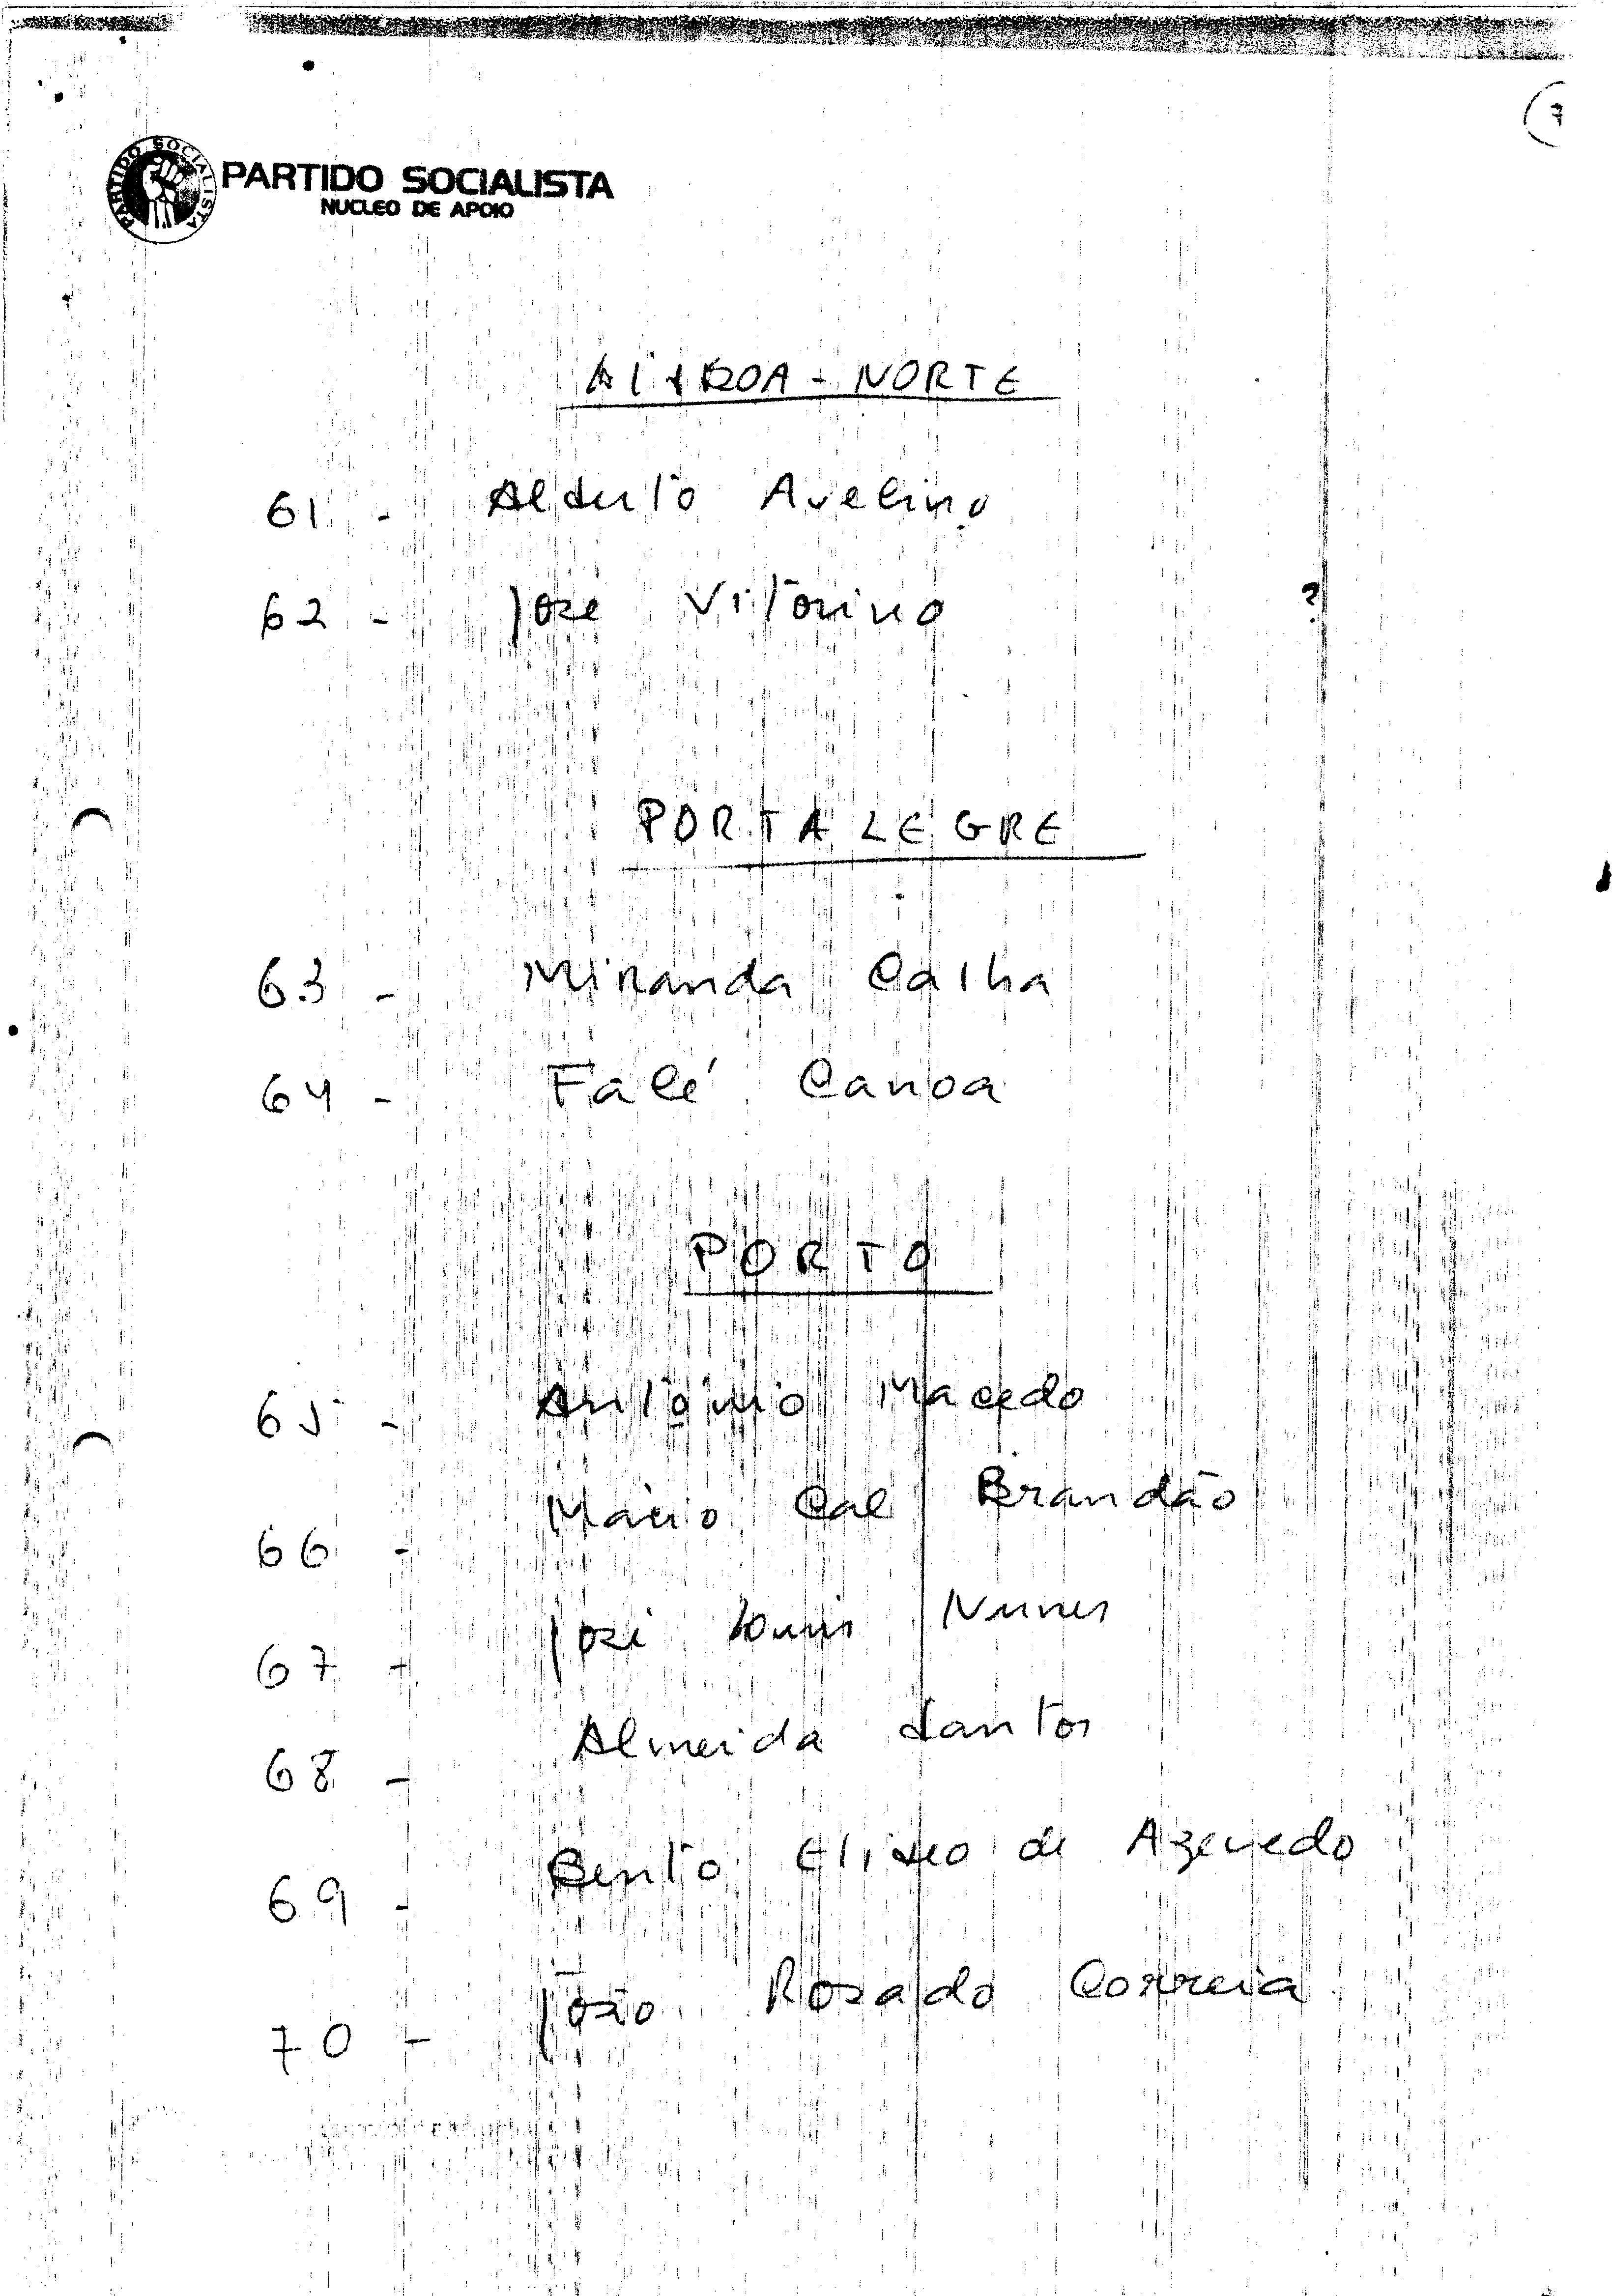 7
PARTIDO SOCIALISTA
PARTIDO SOCIALISTA
NUCLEO DE APOIO
LISBOA - NORTE
61 - Alberto Avelino
62 - José Vitorino ?
PORTALEGRE
63 - Miranda Calha
64 - Falé Canoa
PORTO
65 - António Macedo
66 - Mário Cal Brandão
67 - José Luis Nunes
68 - Almeida Santos
69 - Bento Eliseo de Azevedo
70 - João Rosado Correia